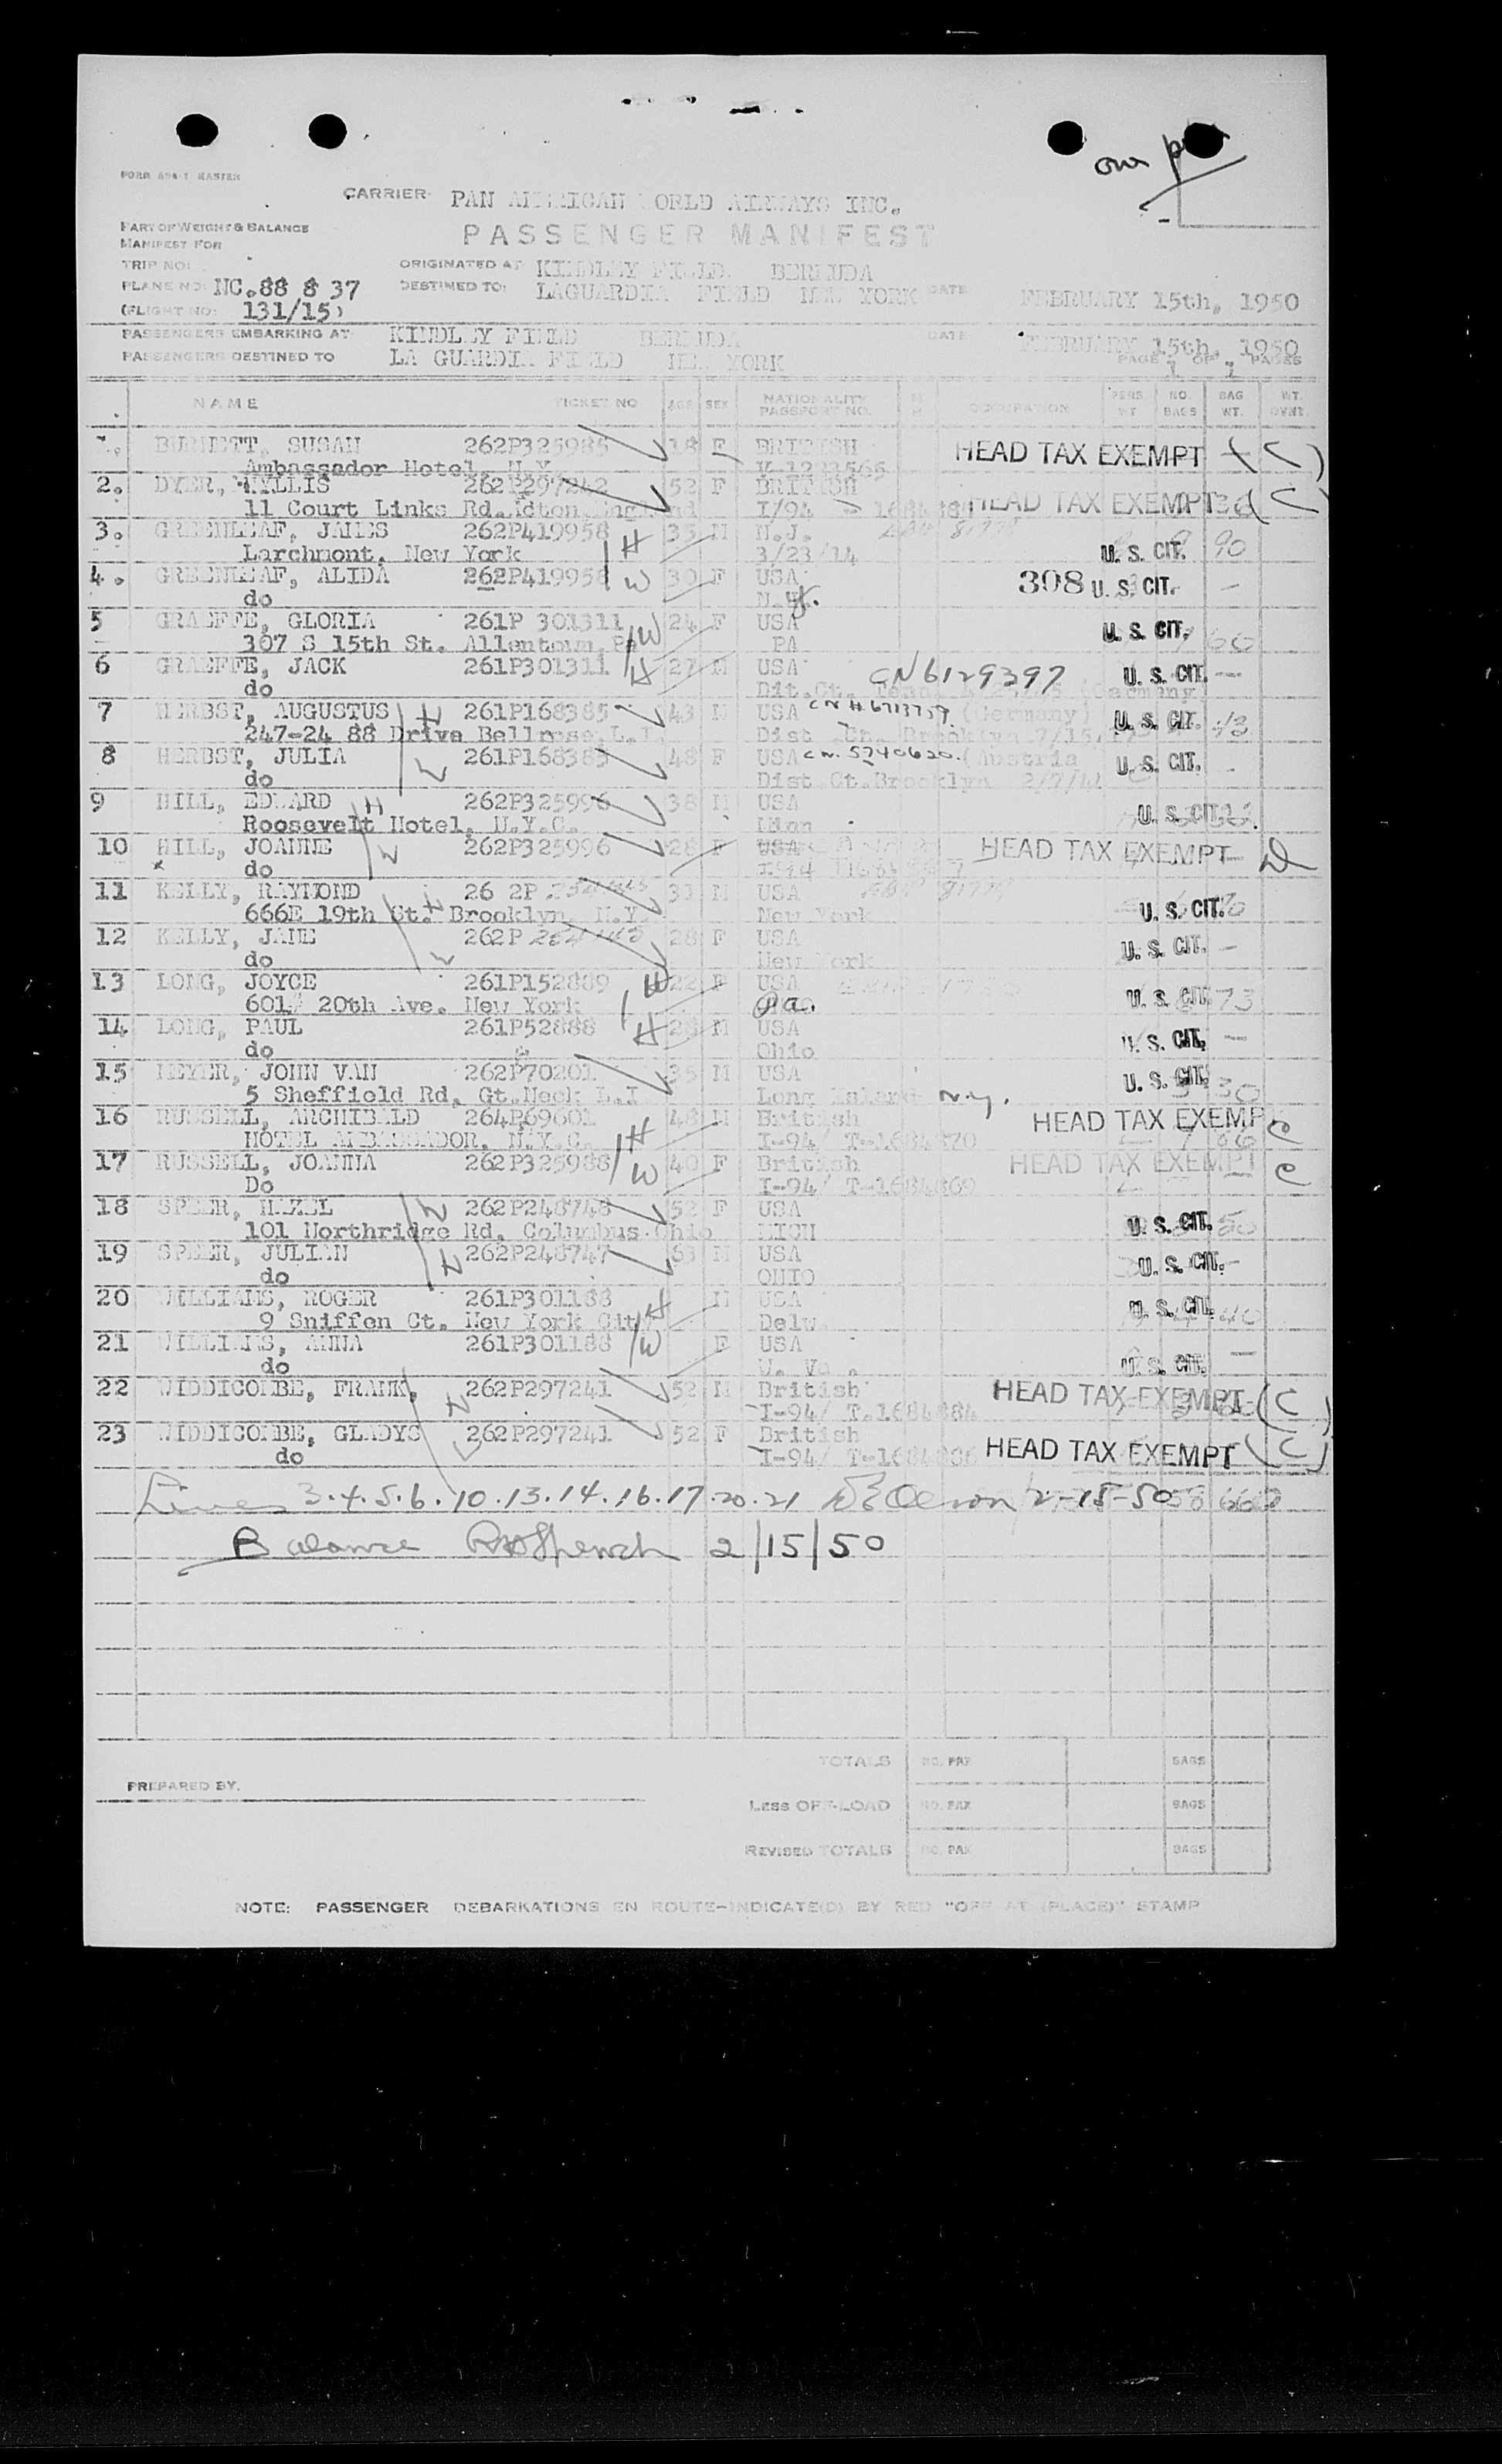 FORM 494-1 MASTER
CARRIER: PAN AMERICAN WORLD AIRWAYS INC.
PART OF WEIGHT & BALANCE
MANIFEST FOR
PASSENGER MANIFEST
TRIP NO:
ORIGINATED AT KINDLEY FIELD. BERMUDA
PLANE NO: NC.88 8 37 DESTINED TO: LAGUARDIA FIELD NEW YORK DATE FEBRUARY 15th, 1950
(FLIGHT NO: 131/15)
PASSENGERS EMBARKING AT KINDLEY FIELD BERMUDA DATE FEBRUARY 15th, 1950
PASSENGERS DESTINED TO LA GUARDIA FIELD NEW YORK PAGE 1 OF 1 PAGES
NAME TICKET NO AGE SEX NATIONALITY PASSPORT NO. OCCUPATION PERS. WT NO. BAGS BAG WT. WT. OVWT.
1. BURNETT, SUSAN 262P325985 18 F BRITISH HEAD TAX EXEMPT (C)
Ambassador Hotel, N.Y.
2. DYER, PHYLLIS 262P297242 52 F BRITISH HEAD TAX EXEMPT (C)
11 Court Links Rd. England I/94
3. GREENLEAF, JAMES 262P419958 H 35 M N.J. U. S. CIT. 90
Larchmont, New York 3/23/14
4. GREENLEAF, ALIDA 262P419958 W 30 F USA 308 U. S. CIT. -
do N.Y.
5 GRAEFFE, GLORIA 261P 301311 W 24 F USA U. S. CIT. 60
307 S 15th St. Allentown, Pa PA
6 GRAEFFE, JACK 261P301311 H 27 M USA CN6129397 U. S. CIT. -
do Dit.Ct. (Germany)
7 HERBST, AUGUSTUS H 261P168385 43 M USA (Germany) U. S. CIT.
247-24 88 Drive Bellrose, L.I. Dist Brooklyn
8 HERBST, JULIA W 261P168385 48 F USA cn. 5740620. (Austria U. S. CIT. -
do Dist Ct.Brooklyn 2/7/
9 HILL, EDWARD H 262P325996 38 M USA U. S. CIT.
Roosevelt Hotel, N.Y.C.
10 HILL, JOANNE W 262P325996 28 F USA HEAD TAX EXEMPT
do
11 KELLY, RAYMOND H 26 2P 31 M USA U. S. CIT.
666E 19th St. Brooklyn, N.Y. New York
12 KELLY, JANE W 262P 28 F USA U. S. CIT. -
do New York
13 LONG, JOYCE 261P152889 W 22 F USA U. S. CIT. 73
601 20th Ave. New York Pa.
14 LONG, PAUL 261P52888 H 28 M USA U. S. CIT. -
do Ohio
15 MEYER, JOHN VAN 262P70201 35 M USA U. S. CIT. 30
5 Sheffield Rd, Gt.Neck L.I Long Island N.Y.
16 RUSSELL, ARCHIBALD 264P69601 H 48 M British HEAD TAX EXEMPT C
HOTEL AMBASSADOR, N.Y.C. I-94 T-1684870
17 RUSSELL, JOANNA 262P325988 W 40 F British HEAD TAX EXEMPT C
Do I-94/ T-1684869
18 SPEER, HAZEL W 262P248748 52 F USA U. S. CIT. 50
101 Northridge Rd, Columbus Ohio MICH
19 SPEER, JULIAN H 262P248747 63 M USA U. S. CIT. -
do OHIO
20 WILLIAMS, ROGER 261P301188 H M USA U. S. CIT. 40
9 Sniffen Ct. New York City Delw.
21 WILLIAMS, ANNA 261P301188 W F USA U. S. CIT. -
do W. Va.
22 WIDDICOMBE, FRANK, H 262P297241 52 M British HEAD TAX EXEMPT (C)
I-94/ T.1684884
23 WIDDICOMBE, GLADYS W 262P297241 52 F British HEAD TAX EXEMPT (C)
do I-94/ T-1684886
Lines 3.4.5.6.10.13.14.16.17.20.21 Olson 2-15-50
Balance 2/15/50
TOTALS NO. PAX BAGS
PREPARED BY.
LESS OFF-LOAD NO. PAX BAGS
REVISED TOTALS NO. PAX BAGS
NOTE: PASSENGER DEBARKATIONS EN ROUTE-INDICATE(D) BY RED "OFF AT (PLACE)" STAMP